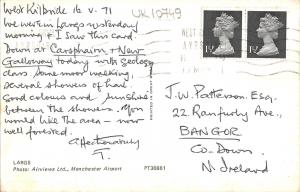 West Kilbride 16. V. 71
UK10749
We were in Largs yesterday
morning & I saw this card.
Down at Carsphairn & New
Galloway today with Geology
class. Some moor walking,
several showers of hail.
Good colours and sunshine
between the showers. You
would like the area – now
well forested.
T.
LARGS
Photo: Airviews Ltd., Manchester Airport
PT36661
PRINTED IN
WEST
1½D
1½D
J.W. Patterson. Esq.
22. Ranfurly Ave.,
BANGOR
Co. Down.
N. Ireland